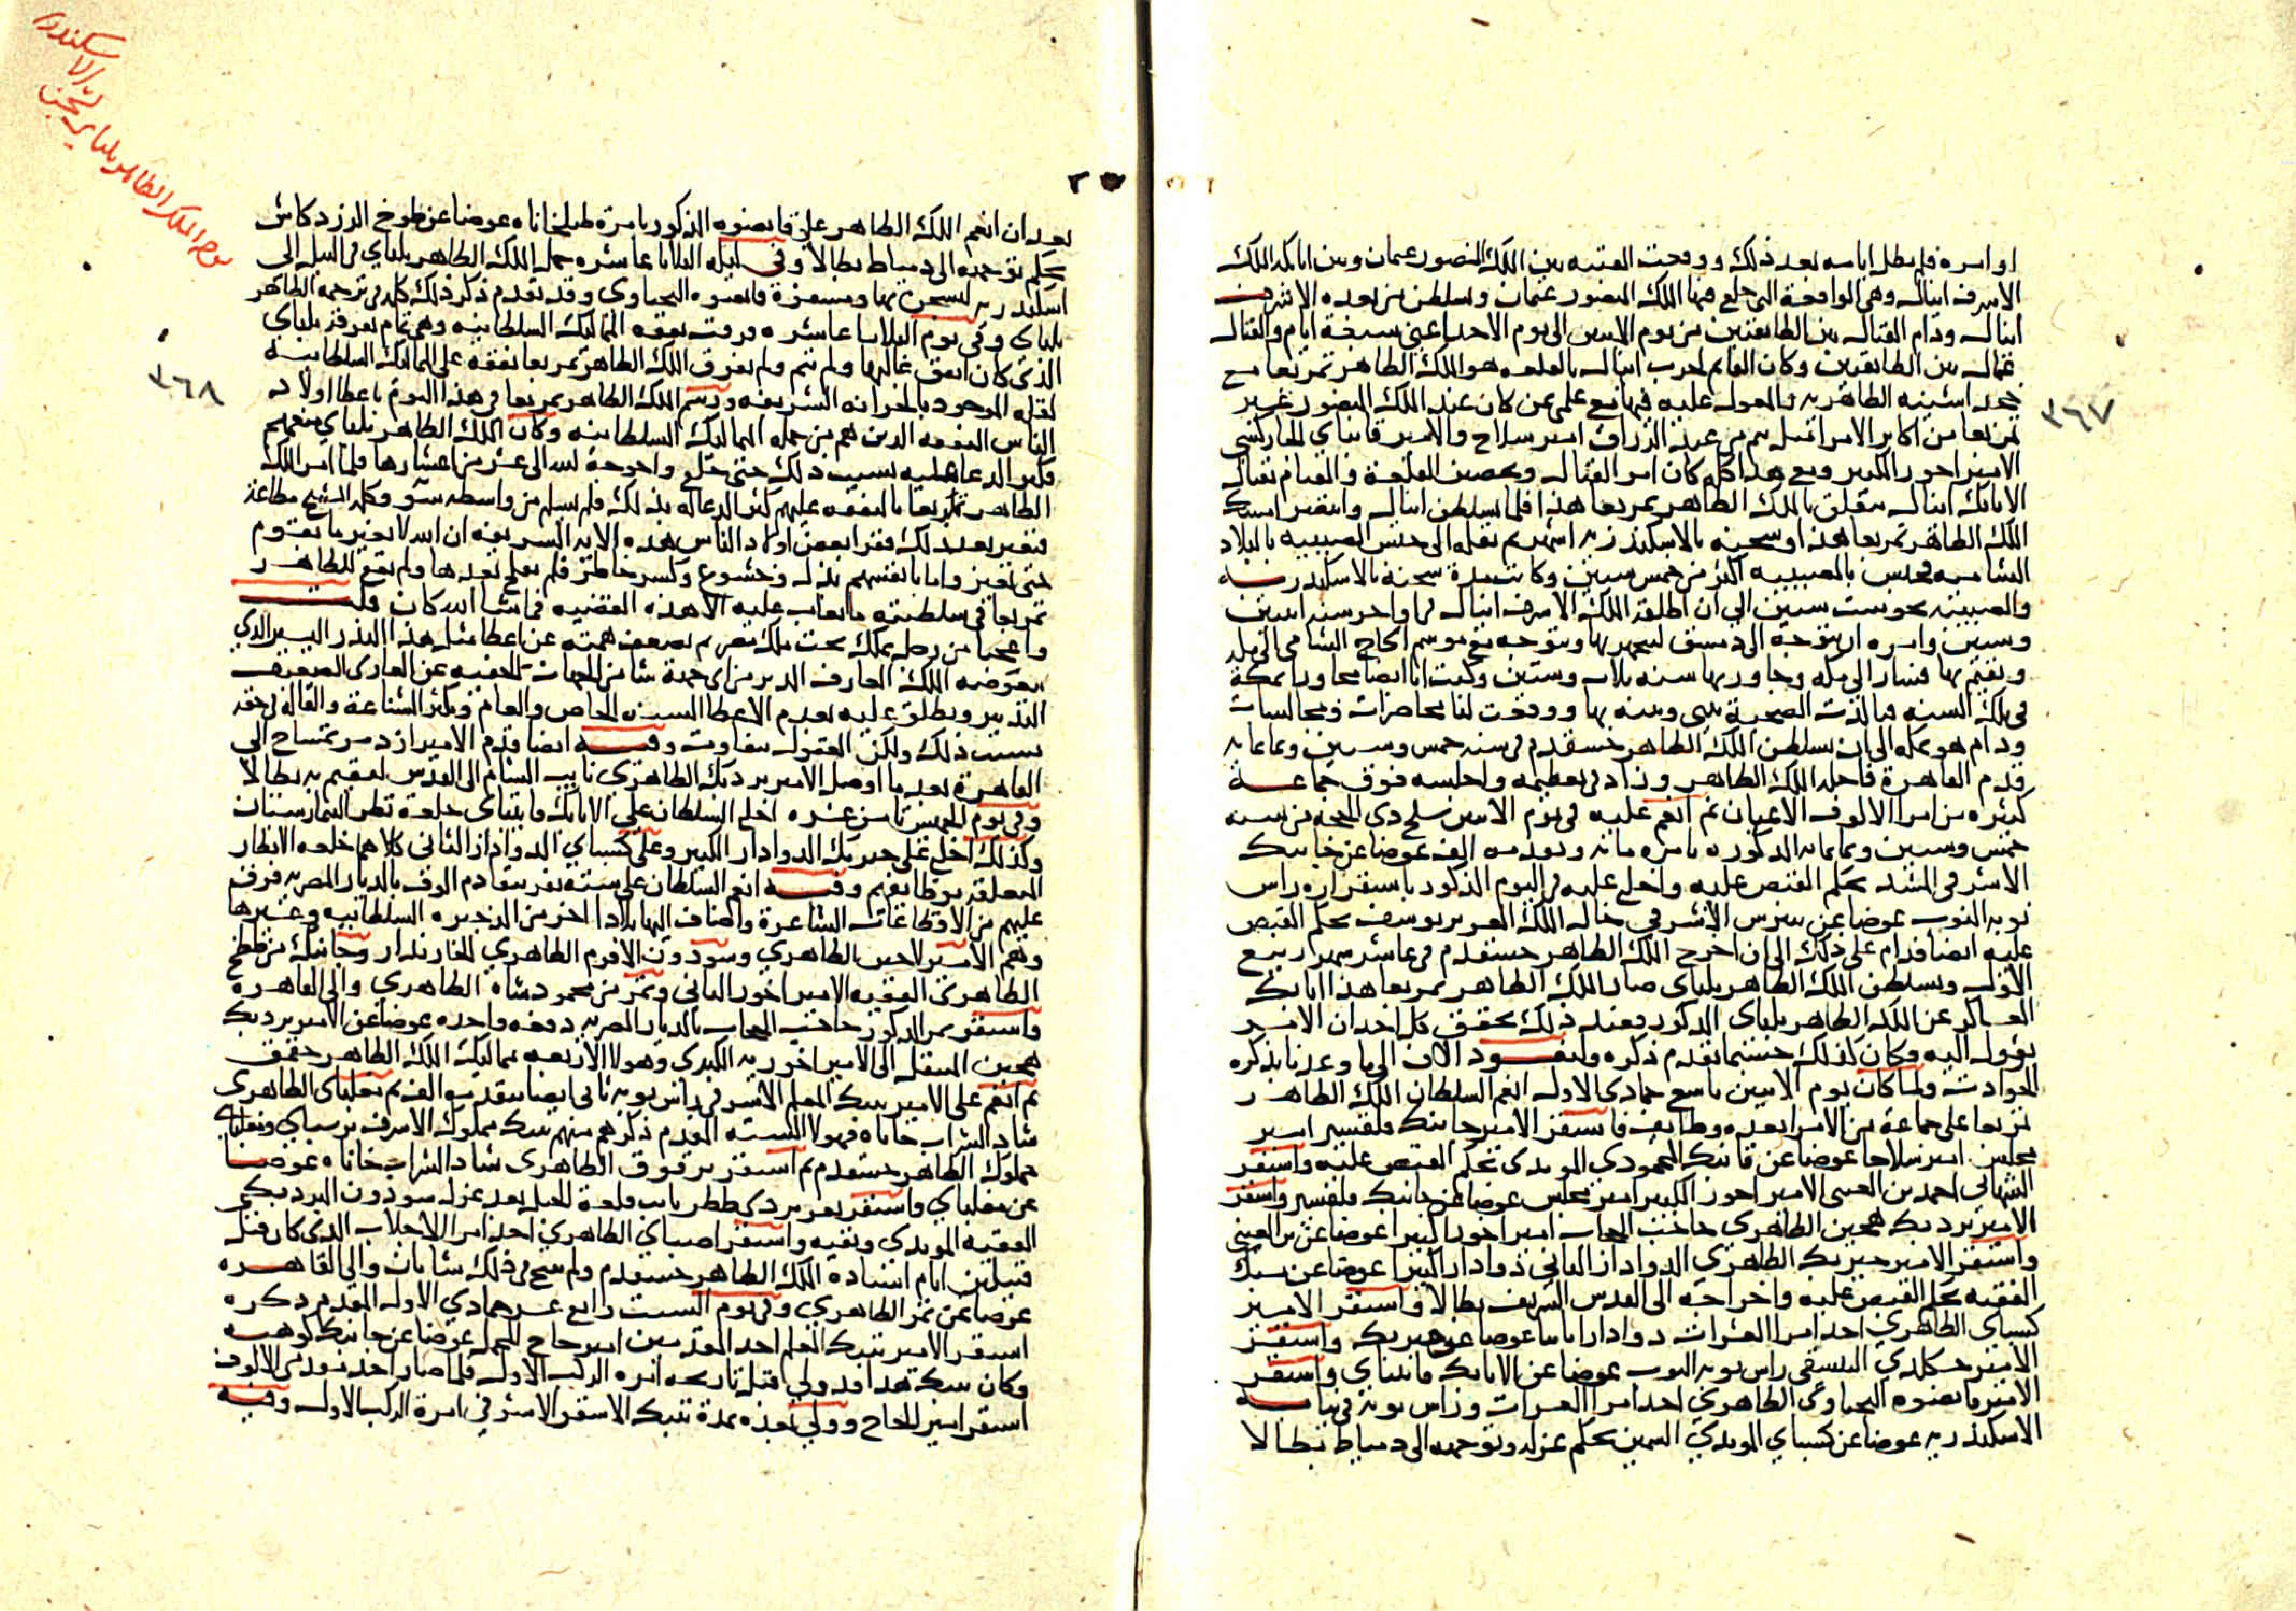 او امره فلم تطل ايامه بعد ذلك ووقعت الفتنه بين الملك المنصور عثمان وبين اتابكه الملك
الاشرف اينال وهى الواقعة التى خلع فيها الملك المنصور عثمان وتسلطن من بعده الاشرف
اينال ودام القتال بين الطائفتين من يوم الاثنين الى يوم الاحد اعنى سبعة ايام والقتال
عمال بين الطائفتين وكان القايم لحرب اينال بالقلعه هو الملك الظاهر تمربغا مع
خجداشيته الظاهريه والمعول عليه فيها مع علمى بمن كان عند الملك المنصور غير
تمربغا من اكابر الامرا مثل تنم من عبد الرزاق امير سلاح والامير قانباى الجاركسى
الامير اخور الكبير ومع هذا كله كان امر القتال وتحصين القلعة والقيام بقتال
الاتابك اينال متعلق بالملك الظاهر تمربغا هذا فلما تسلطن اينال وانتصر امسك
الملك الظاهر تمربغا هذا وسجنه بالاسكندريه اشهر ثم نقله الى حبس الصبيبه بالبلاد
الشاميه فحبس بالصبيبه اكثر من خمس سنين وكانت مدة سجنه بالاسكندريه
والصبيبه نحو ست سنين الى ان اطلقه الملك الاشرف اينال فى اواخر سنه اثنتين
وستين وامره ان يتوجه الى دمشق ليتجهز بها ويتوجه مع موسم الحاج الشامى الى مكه
ويقيم بها فسار الى مكه وجاور بها سنه ثلاث وستين وكنت انا ايضا مجاورا بمكة
فى تلك السنه فتاكدت الصحبة بينى وبينه بها ووقعت لنا محاضرات ومجالسات
ودام هو بمكه الى ان تسلطن الملك الظاهر خشقدم فى سنه خمس وستين وثمانمايه
فقدم القاهرة فاجله الملك الظاهر وزاد فى تعظيمه واجلسه فوق جماعة
كثيره من امرا الالوف الاعيان ثم انعم عليه فى يوم الاثنين سلخ ذى الحجه من سنه
خمس وستين وثمانمايه المذكوره بامره مايه وتقدمه الف عوضا عن جانبك
الاشرفى المشد بحكم القبض عليه واخلع عليه فى اليوم المذكور باستقراره راس
نوبه النوب عوضا عن بيبرس الاشرفى خال الملك العزيز يوسف بحكم القبض
عليه ايضا فدام على ذلك الى ان اخرج الملك الظاهر خشقدم فى عاشر شهر ربيع
الاول وتسلطن الملك الظاهر يلباى صار الملك الظاهر تمربغا هذا اتابك
العساكر عن الملك الظاهر يلباى المذكور فعند ذلك تحقق كل احد ان الامر
يؤول اليه فكان كذلك حسبما تقدم ذكره ولنعود الان الى ما وعدنا بذكره
الحوادث ولما كان يوم الاثنين تاسع جمادى الاول انعم السلطان الملك الظاهر
تمربغا على جماعة من الامرا بعده وظايف فاستقر الامير جانبك قلقسيز امير
مجلس امير سلاحا عوضا عن قانبك المحمودى المويدى بحكم القبض عليه واستقر
الشهابى احمد بن العينى الامير اخور الكبير امير مجلس عوضا عن جانبك قلقسيز واستقر
الامير بردبك هجين الظاهرى حاجب الحجاب امير اخورا كبيرا عوضا عن بن العينى
واستقر الامير خيربك الظاهرى الدوادار الثانى دوادارا كبيرا عوضا عن يشبك
الفقيه بحكم القبض عليه واخراجه الى القدس الشريف بطالا واستقر الامير
كسباى الظاهرى احد امرا العشرات دوادارا ثانيا عوضا عن خيربك واستقر
الامير خشكلدى البيسقى راس نوبه النوب عوضا عن الاتابك قايتباى واستقر
الامير قانصوه اليحياوى الظاهرى احد امرا العشرات وراس نوبه فى نيابه
الاسكندريه عوضا عن كسباى المويدى السمين بحكم عزله وتوجهه الى دمياط بطالا
٣٦٧
بعد ان انعم الملك الظاهر على قانصوه المذكور بامرة طبلخاناه عوضا عن طوخ الزردكاش
بحكم توجهه الى دمياط بطالا وفى ليله الثلاثا عاشره حمل الملك الظاهر يلباى فى النيل الى
اسكندريه ليسجن بها ومسفره قانصوه اليحياوى وقد تقدم ذكر ذلك كله فى ترجمه الظاهر
يلباى وفى يوم الثلاثا عاشره فرقت نفقه المماليك السلطانيه وهى تمام تفرقه يلباى
الذى كان انفق غالبها ولم تتم ولم يفرق الملك الظاهر تمربغا نفقه على المماليك السلطانيه
لقله الموجود بالخزانه الشريفه ورسم الملك الظاهر تمربغا فى هذا اليوم باعطا اولاد
الناس النفقه الذين هم من جمله المماليك السلطانيه وكان الملك الظاهر يلباى منعهم
فكثر الدعا عليه بسبب ذلك حتى خلع واحوجه لله الى عشر من اعشارها فلما امر الملك
الظاهر تمربغا بالنفقه عليهم كثر الدعا له بذلك فلم يسلم من واسطه سو وكله الشح مطاعة
فتغير بعد ذلك فقرا بعض اولاد الناس هذه الايه الشريفه ان الله لا يغير ما بقوم
حتى يغيروا ما بانفسهم بذل وخشوع وكسر خاطر فلم يفلح بعدها ولم يقع للظاهر
تمربغا فى سلطنته ما يعاب عليه الا هذه القضيه فما شا الله كان قلت
واعجبا من رجل يملك تحت ملك مصر ثم تضعف همته عن اعطا مثل هذا النذر اليسير الذى
يعوضه الملك العارف المدبر من اى جهة شا من الجهات الخفيه عن العارى الضعيف
التدبير ويطلق عليه بعدم الاعطا السنن الخاص والعام وتكثر الشناعة والقاله فى حقه
بسبب ذلك ولكن العقول تتفاوت وفيه ايضا قدم الامير ازدمر تمساح الى
القاهرة بعد ما اوصل الامير بردبك الظاهرى نايب الشام الى القدس ليقيم به بطالا
وفى يوم الخميس ثانى عشره اخلع السلطان على الاتابك قايتباى خلعة نظر البيمارستان
وكذلك اخلع على خيربك الدوادار الكبير وعلى كسباى الدوادار الثانى كلاهما خلعه الانظار
المتعلقه بوظايفهم وفيه انعم السلطان على ستة نفر بتقادم الوف بالديار المصريه فرق
عليهم من الاقطاعات الشاغرة واضاف اليها بلادا اخر من الذخيره السلطانيه وغيرها
وهم الامير لاجين الظاهرى وسودون الافرم الظاهرى الخازندار وجانبك من ططخ
الظاهرى الفقيه الامير اخور الثانى وتمر من محمود شاه الظاهرى والى القاهرة
واستقر تمر المذكور حاجب الحجاب بالديار المصريه دفعه واحده عوضا عن الامير بردبك
هجين المنتقل الى الامير اخوريه الكبرى وهولا الاربعه مماليك الملك الظاهر جقمق
ثم انعم على الامير تنبك المعلم الاشرفى راس نوبه ثانى ايضا بتقدمه الف ثم مغلباى الظاهرى
شاد الشراب خاناه فهولا السته المقدم ذكرهم منهم تنبك مملوك الاشرف برسباى ومغلباى
مملوك الظاهر خشقدم ثم استقر برقوق الظاهرى شاد الشراب خاناه عوضا
عن مغلباى واستقر تغرى بردى ططر نايب قلعة الجبل بعد عزل سودون البردبكى
الفقيه المويدى ونفيه واستقر اصباى الظاهرى احد امرا الاجلاب الذى كان قتل
قتيلين ايام استاذه الملك الظاهر خشقدم ولم ينتطح فى ذلك شاتان والى القاهره
عوضا عن تمر الظاهرى وفى يوم السبت رابع عشر جمادى الاول المقدم ذكره
استقر الامير تنبك المعلم احد المقدمين امير حاج المحمل عوضا عن جانبك كوهيه
وكان تنبك هذا قد ولى قبل تاريخه امره الركب الاول فلما صار احد مقدمى الالوف
استقر امير الحاج وولى بعده بمدة تنبك الاشقر الاشرفى امرة الركب الاول وفيه
٣٦٨